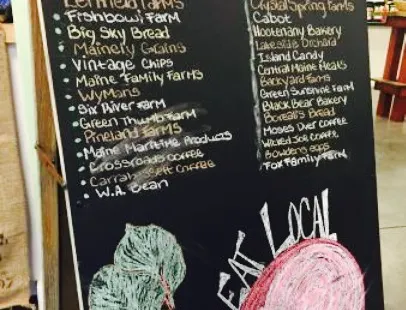 Fishbowl Farm
Big Sky Bread
Mainely Grains
Vintage Chips
Maine Family Farms
Wymans
Six River Farm
Green Thumb Farm
Pineland Farms
Maine Maritime Products
Crossroads Coffee
Carrabassett Coffee
W.A. Bean
Crystal Spring Farms
Cabot
Hootenany Bakery
Lakeside Orchard
Island Candy
Central Maine Meats
Backyard Farms
Green Sunshine Farm
Black Bear Bakery
Borealis Bread
Moses Dyer Coffee
Wicked Joe Coffee
Bowdens eggs
Fox Family Farm
EAT LOCAL